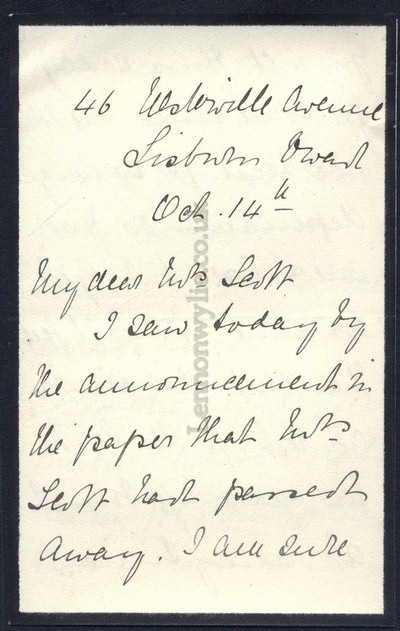 46 Ulsterville Avenue
Lisburn Road
Oct. 14th
My dear Mrs Scott
I saw today by
the announcement in
the paper that Mrs
Scott had passed
away. I am sure
Lennonwylie.co.uk